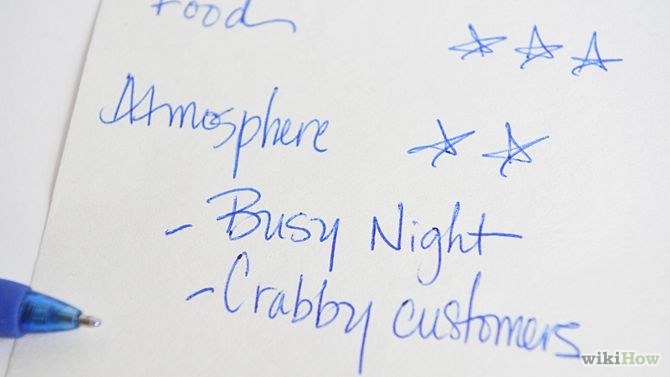 Food
Atmosphere
- Busy Night
- Crabby customers
wikiHow